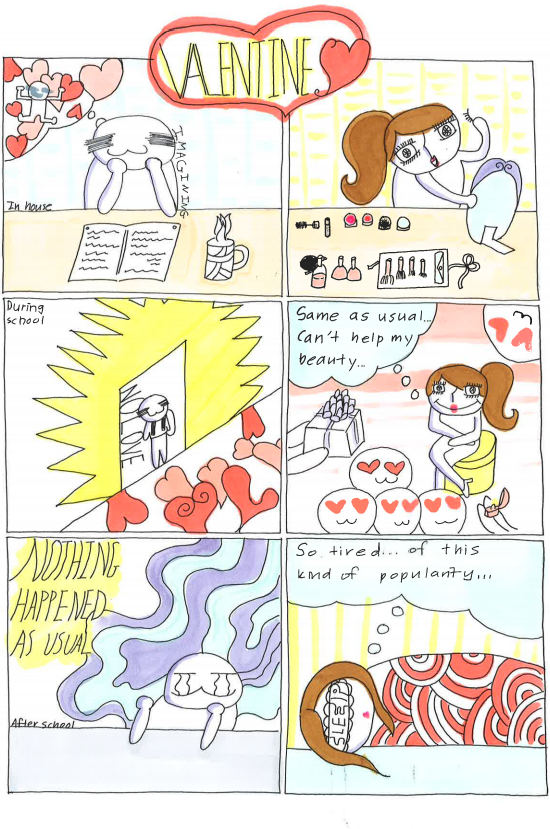 VALENTINE
IMAGINING
In house
During
school
Same as usual...
Can't help my
beauty...
NOTHING
HAPPENED
AS USUAL
After school
So tired... of this
kind of popularity...
SLEEP